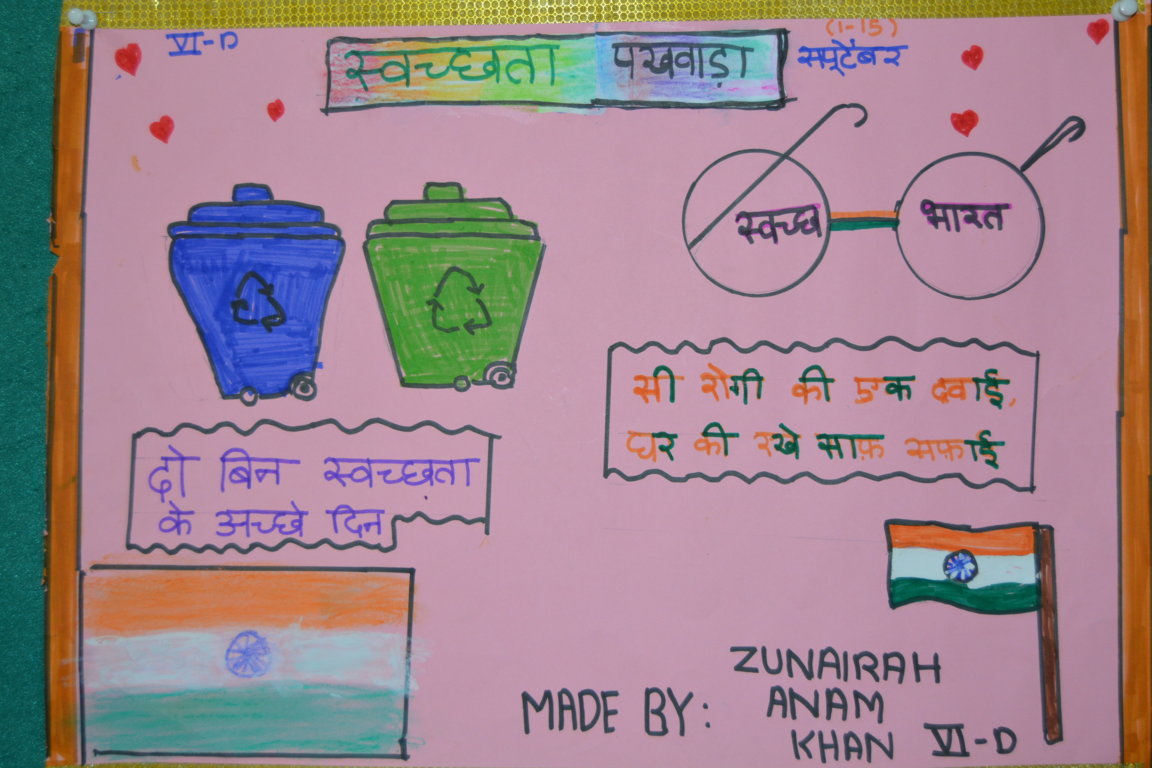 VI-D
स्वच्छता पखवाड़ा
(1-15)
सप्टेंबर
स्वच्छ भारत
सी रोगी की एक दवाई,
घर की रखे साफ़ सफ़ाई
दो बिन स्वच्छता
के अच्छे दिन
MADE BY: ZUNAIRAH
ANAM
KHAN VI-D